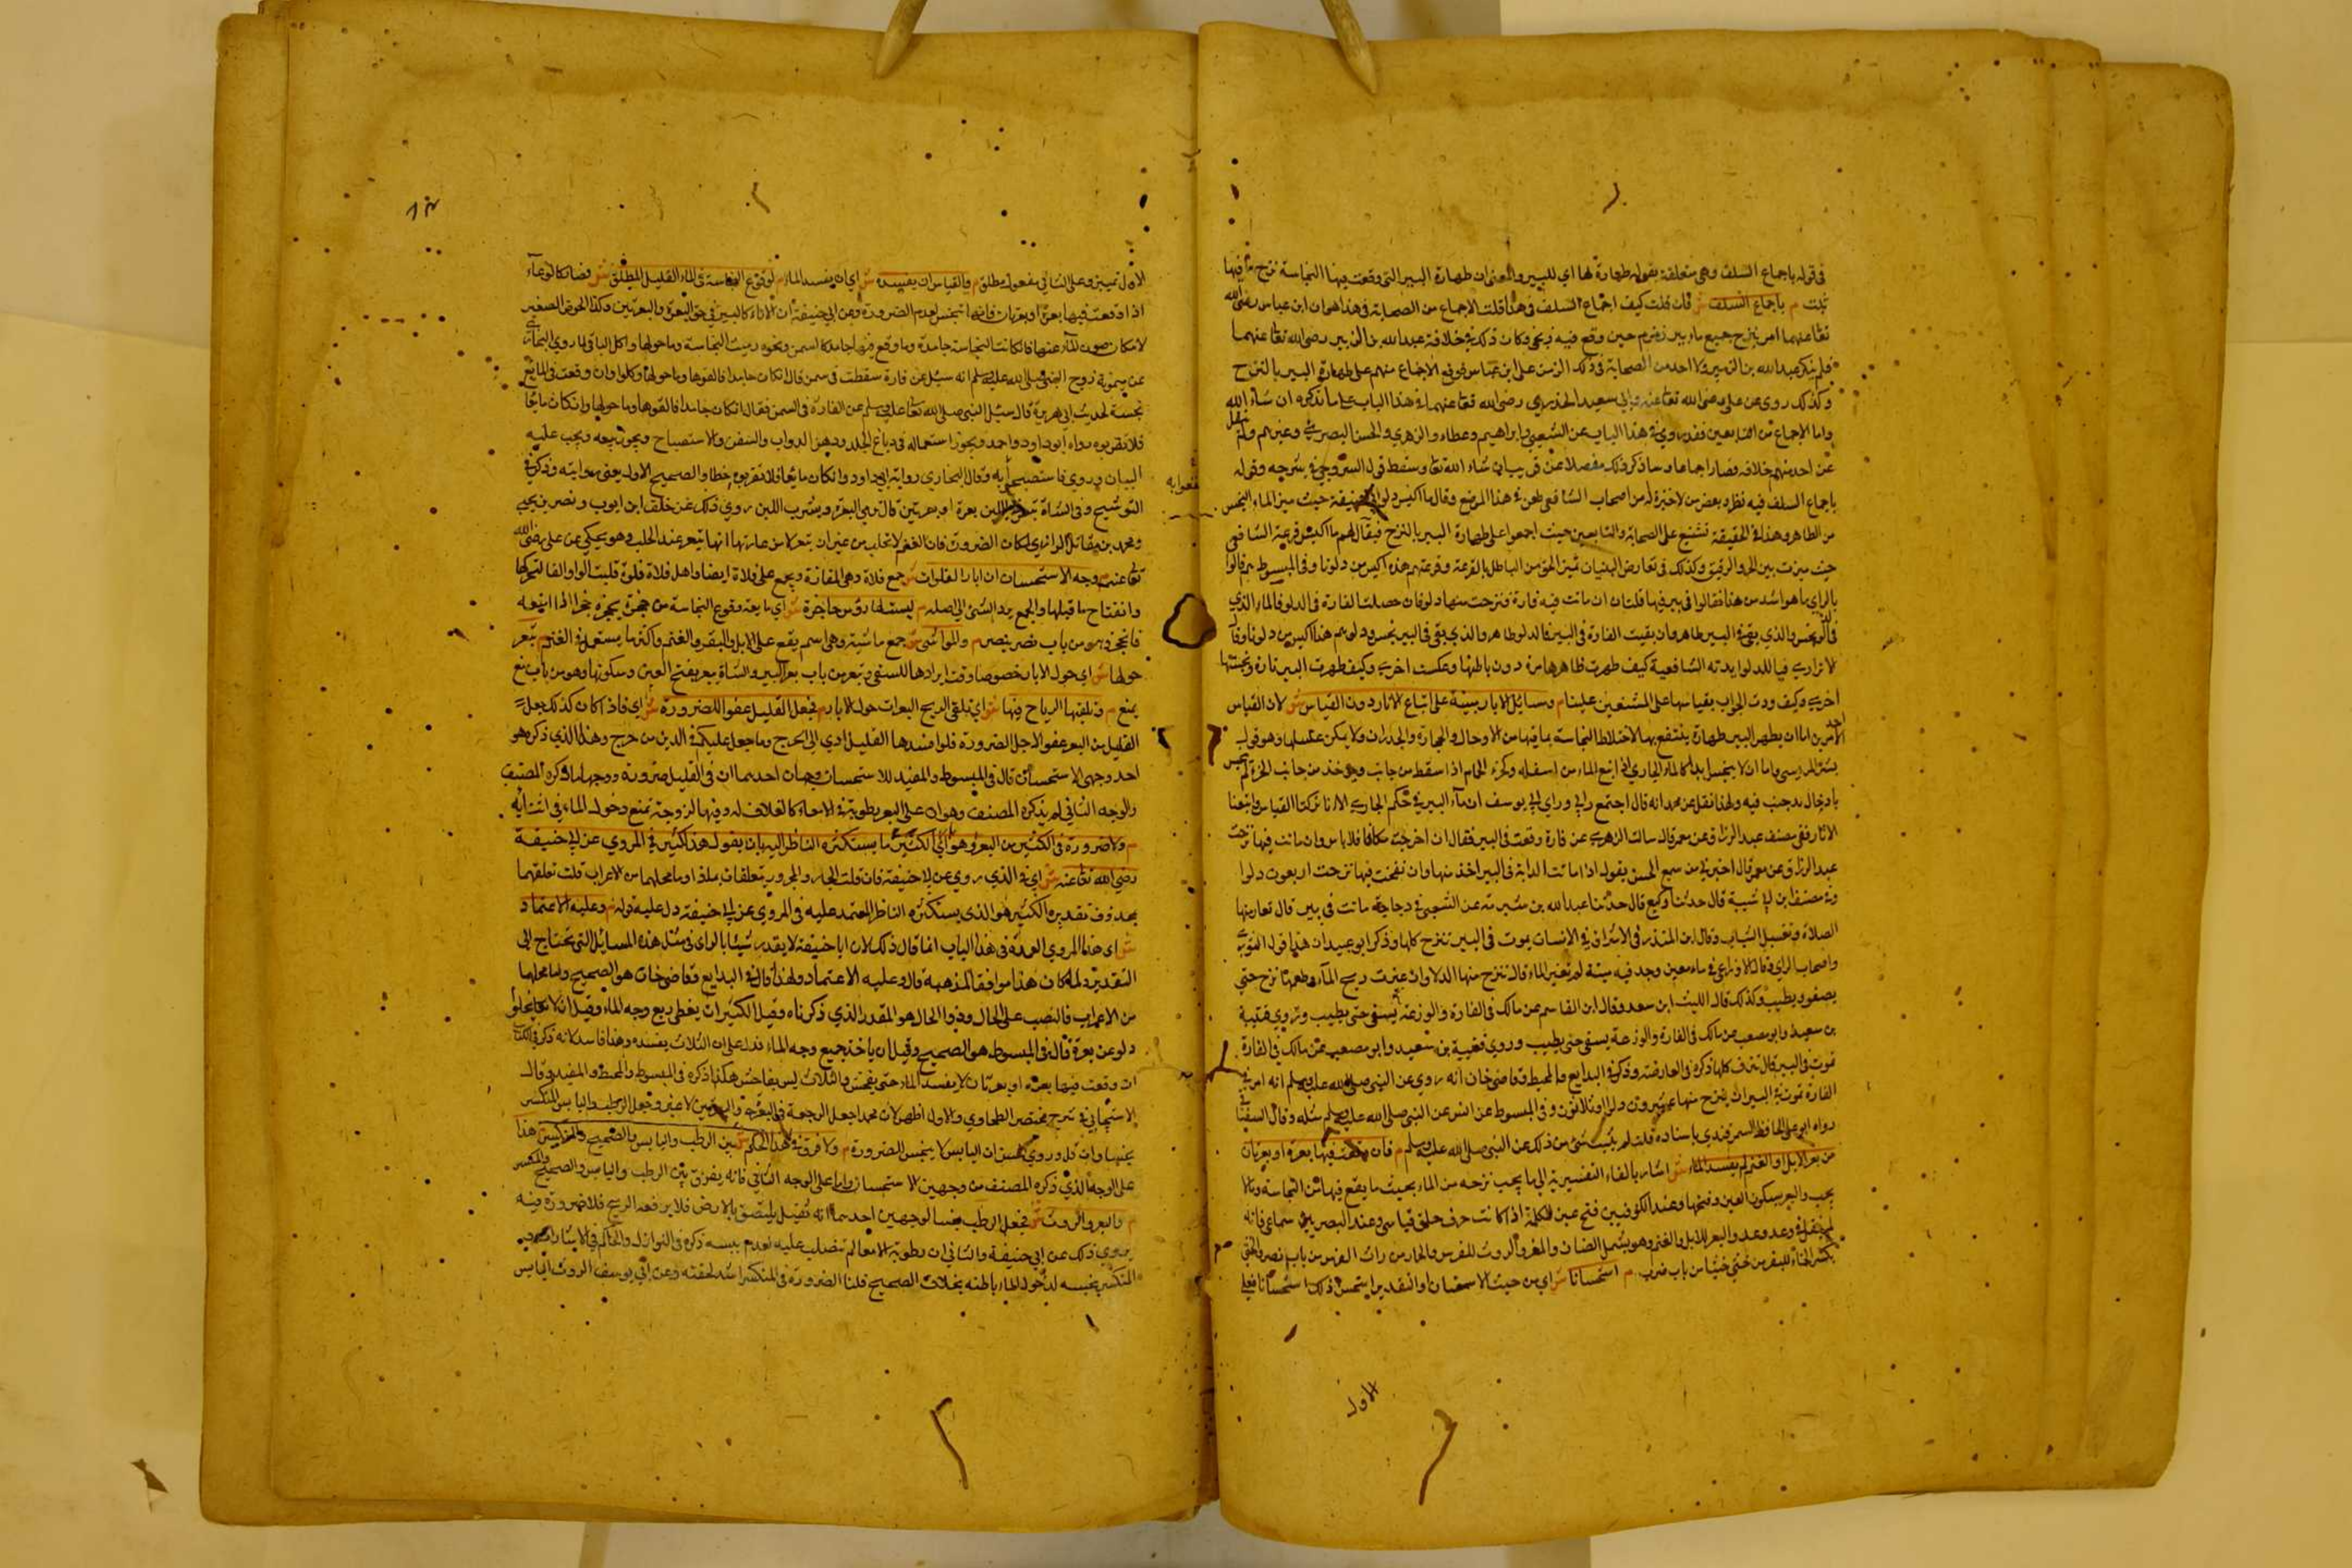 في قوله باجماع السلف وهي متعلقة بقوله طهارة لها اي للبير والمعنى ان طهارة البير التي وقعت فيها النجاسة نزح ما فيها
ثبتت م باجماع السلف ش فان قلت كيف اجماع السلف في هذا قلت الاجماع من الصحابة في هذا هو ان ابن عباس رضي الله
تعا عنهما امر بنزح جميع ماء بير زمزم حين وقع فيه زنجي وكان ذلك في خلافة عبد الله بن الزبير رضي الله تعا عنهما
فلم ينكر عبد الله بن الزبير ولا احد من الصحابة في ذلك الزمن على ابن عباس فوقع الاجماع منهم على طهارة البير بالنزح
وكذلك روي عن علي رضي الله تعا عنه وابي سعيد الخدري رضي الله تعا عنهما في هذا الباب على ما نذكره ان شاء الله
واما الاجماع من التابعين فقد روي في هذا الباب عن الشعبي وابراهيم وعطاء والزهري والحسن البصري وغيرهم ولم ينقل
عن احد منهم خلافه فصار اجماعا وساذكر ذلك مفصلا عن قريب ان شاء الله تعا وسقط قول السروجي في شرحه وقوله
باجماع السلف فيه نظر وبعض من لا خبرة له من اصحاب الشافعي طعن في هذا الموضع وقال ما اكيس دلو ابي حنيفة حيث ميز الماء النجس
من الطاهر وهذا في الحقيقة تشنيع على الصحابة والتابعين حيث اجمعوا على طهارة البير بالنزح فيقال لهم ما اكيس قرعة الشافعي
حيث ميزت بين الحر والرقيق وكذلك في تعارض البينتات تميز الحق من الباطل بالقرعة وقرعتهم هذه اكيس من دلونا وفي المبسوط هم قالوا
بالراي ما هو اشد من هذا فقالوا في بير فيها قلتان ان ماتت فيه فارة فنزحت منها دلو فان حصلت الفارة في الدلو فالماء الذي
في الدلو نجس والذي بقي في البير طاهر وان بقيت الفارة في البير فالدلو طاهر والذي بقي في البير نجس ودلوهم هذا اكيس من دلونا
لا تراري فيا للدلو ايدته الشافعية كيف طهرت ظاهرها مرة دون باطنها وعكست اخرى وكيف طهرت البير تارة ونجستها
اخرى وكيف ردت الجواب بقياسها على المشنعين علينا م ومسائل الابار مبنية على اتباع الاثار دون القياس ش لان القياس
احد الامرين اما ان يطهر البير طهارة ينتفع بها لاختلاط النجاسة بما فيها من الاوحال والحجارة والجدران ولا يمكن غسلها وهو قول
بشر المريسي واما ان لا ينجس ابدا كالماء الجاري اذا نبع الماء من اسفله وكحوض الحمام اذا سقط من جانب ويوخذ من جانب اخر لم ينجس
بادخال يد جنب فيه ولهذا نقل عن محمد انه قال اجتمع رايي وراي ابي يوسف ان ماء البير في حكم الجاري الا انا تركنا القياس واتبعنا
الاثار ففي مصنف عبد الرزاق عن معمر قال سالت الزهري عن فارة وقعت في البير فقال ان اخرجت مكانها فلا باس وان ماتت فيها نزحت
عبد الرزاق عن معمر قال اخبرني من سمع الحسن يقول اذا ماتت الدابة في البير اخذ منها وان تفسخت فيها نزحت اربعون دلوا
وفي مصنف ابن ابي شيبة قال حدثنا وكيع قال حدثنا عبد الله بن سبرة عن الشعبي في دجاجة ماتت في بير قال تعاد منها
الصلاة وتغسل الثياب وقال ابن المنذر في الاشراف في الانسان يموت في البير تنزح كلها وذكر ابو عبيد ان هذا قول الثوري
واصحاب الراي وقال الاوزاعي في ماء معين وجد فيه ميتة لم تغير الماء قال تنزح منها الدلاء وان غيرت ريح الماء وطعمه نزح حتى
يصفو ويطيب وكذلك قال الليث ابن سعد وقال ابن القاسم عن مالك في الفارة والوزغة يستقى حتى يطيب وروي قتيبة
بن سعيد وابو مصعب عن مالك في الفارة والوزغة يستقى حتى يطيب وروي قتيبة بن سعيد وابو مصعب عن مالك في الفارة
تموت في البير قال تنزف كلها ذكره في العارضة وذكر في البدايع والمحيط وقاضيخان انه روي عن النبي صلى الله عليه وسلم انه امر في
الفارة تموت في البير ان ينزح منها عشرون دلوا او ثلاثون وفي المبسوط عن انس عن النبي صلى الله عليه وسلم مثله وقال السغناقي
رواه ابو علي الحافظ السمرقندي باسناده قلت لم يثبت شيء من ذلك عن النبي صلى الله عليه وسلم م فان وقعت فيها بعرة او بعرتان
من بعر الابل او الغنم لم يفسد الماء ش اشار بالفاء التفسيرية الى ما يجب نزحه من الماء بحيث ما يقع فيها من النجاسة وما لا
يجب والبعر بسكون العين وفتحها وعند الكوفيين فتح عين الكلمة اذا كانت حرف حلق قياسي وعند البصريين سماعي فانه
وعد وعد والبعر للابل والغنم وهو يشمل الضان والمعز والروث للفرس والحمار من راث الفرس من باب نصر والخثي
بكسر الخاء للبقر من خثى خثيا من باب ضرب م استحسانا ش اي من حيث الاستحسان والتقدير استحسن ذلك استحسانا فعلى
الاول
١٣
الاول تمييز وعلى الثاني مفعول مطلق م والقياس ان يفسده ش اي ان يفسد الماء م لوقوع النجاسة في الماء القليل المطلق ش فصار كالوعاء
اذا وقعت فيها بعرة او بعرتان فانها تنجس لعدم الضرورة وعن ابي حنيفة ان الاناء كالبير في حق البعرة والبعرتين وكذا الحوض الصغير
لامكان صون الماء عنها فان كانت النجاسة جامدة وما وقع فيها جامد كالسمن ونحوه رميت النجاسة وما حولها واكل الباقي لما روي البخاري
عن ميمونة زوج النبي صلى الله عليه وسلم انه سئل عن فارة سقطت في سمن قال ان كان جامدا فالقوها وما حولها وكلوا وان وقعت في المايع
نجسه لحديث ابي هريرة قال سئل النبي صلى الله تعا عليه وسلم عن الفارة في السمن فقال ان كان جامدا فالقوها وما حولها وان كان مايعا
فلا تقربوه رواه ابو داود واحمد ويجوز استعماله في دباغ الجلد ودهن الدواب والسفن والاستصباح ويجوز بيعه ويجب عليه
البيان وروي فاستصبحوا به وقال البخاري رواية ابي داود وان كان مايعا فلا تقربوه خطا والصحيح الاول يعني روايته وذكر في
فانتفعوا به
التوشيح وفي الشاة تبعر في اللبن بعرة او بعرتين قال ترمى البعرة ويشرب اللبن روي ذلك عن خلف ابن ايوب ونصر بن يحيى
ومحمد بن مقاتل الرازي لمكان الضرورة فان الغنم لا تحلب من غير ان تبعر لان من عادتها انها تبعر عند الحلب وهو يحكى عن علي رضي الله
تعا عنه م وجه الاستحسان ان ابار الفلوات ش جمع فلاة وهي المفازة ويجمع على فلاة ايضا واصل فلاة فلوة قلبت الواو الفا لتحركها
وانفتاح ما قبلها والجمع يرد الشئ الى اصله م ليست لها رؤس حاجزة ش اي مانعة وقوع النجاسة من حجزه يحجزه حجزا اذا منعه
فانحجز وهو من باب نصر ينصر م والمواشي ش جمع ماشية وهي اسم يقع على الابل والبقر والغنم واكثر ما يستعمل في الغنم م تبعر
حولها ش اي حول الابار خصوصا وقت ايرادها للسقي وتبعر من باب بعر البعير والشاة يبعر بفتح العين وسكونها وهو من باب منع
يمنع م وتلقيها الرياح فيها ش اي تلقي الريح البعرات حول الابار م فجعل القليل عفوا للضرورة ش اي فاذا كان كذلك يجعل
القليل من البعر عفوا لاجل الضرورة فلو افسدها القليل ادى الى الحرج وما جعل عليكم في الدين من حرج وهذا الذي ذكره هو
احد وجهي الاستحسان قال في المبسوط والمفيد للاستحسان وجهان احدهما ان في القليل ضرورة ووجهها ما ذكره المصنف
والوجه الثاني لم يذكره المصنف وهو ان على البعر رطوبة في الامعاء كالغلاف له وفيها لزوجة تمنع دخول الماء في اثنائه
م ولا ضرورة في الكثير من البعر وهو اي الكثير ما يستكثره الناظر اليه بان يقول هذا كثير في المروي عن ابي حنيفة
رضي الله تعا عنه ش اي في الذي روي عن ابي حنيفة فان قلت الجار والمجرور يتعلقان بماذا وما محلهما من الاعراب قلت تعلقهما
بمحذوف تقديره الكثير هو الذي يستكثره الناظر المعتمد عليه في المروي عن ابي حنيفة دل عليه قوله م وعليه الاعتماد
ش اي هذا المروي العمدة في هذا الباب انما قال ذلك لان ابا حنيفة لا يقدر شيئا بالراي في مثل هذه المسائل التي تحتاج الى
التقدير ولما كان هذا موافقا لمذهبه قال وعليه الاعتماد ولهذا قال في البدايع وقاضيخان هو الصحيح واما محلهما
من الاعراب فالنصب على الحال وذو الحال هو المقدر الذي ذكرناه وقيل الكثير ان يغطي ربع وجه الماء وقيل ان لا يخلو
دلو عن بعرة قال في المبسوط هو الصحيح وقيل ان ياخذ جميع وجه الماء فدل على ان الثلاث يفسده وهذا فاسد لانه ذكر في الكتاب
ان وقعت فيها بعرة او بعرتان لا يفسد الماء حتى يفحش والثلاث ليس بفاحش هكذا ذكره في المبسوط والمحيط والمفيد وقال
الاسبيجابي في شرح مختصر الطحاوي والاول اظهر لان محمدا جعل الرجعة في البعرة والبعرتين لا غير وجعل الرطب واليابس المنكسر
ينجسها وان قل وروي الحسن ان اليابس لا ينجس للضرورة م ولا فرق في هذا الحكم ش بين الرطب واليابس والصحيح والمنكسر هذا
على الوجه الذي ذكره المصنف من وجهين الاستحسان واما على الوجه الثاني فانه يفرق بين الرطب واليابس والصحيح والمنكسر
م والبعر والروث ش فجعل الرطب نجسا لوجهين احدهما انه ثقيل يلتصق بالارض فلا يرفعه الريح فلا ضرورة فيه
يروي ذلك عن ابي حنيفة والثاني ان رطوبة الامعاء لم تتصلب عليه لعدم يبسه ذكره في النوازل والحاكم في الاشارات وفي
المنكسر نجسه لدخول الماء باطنه بخلاف الصحيح قلنا الضرورة في المنكسر اشد لخفته وعن ابي يوسف الروث اليابس